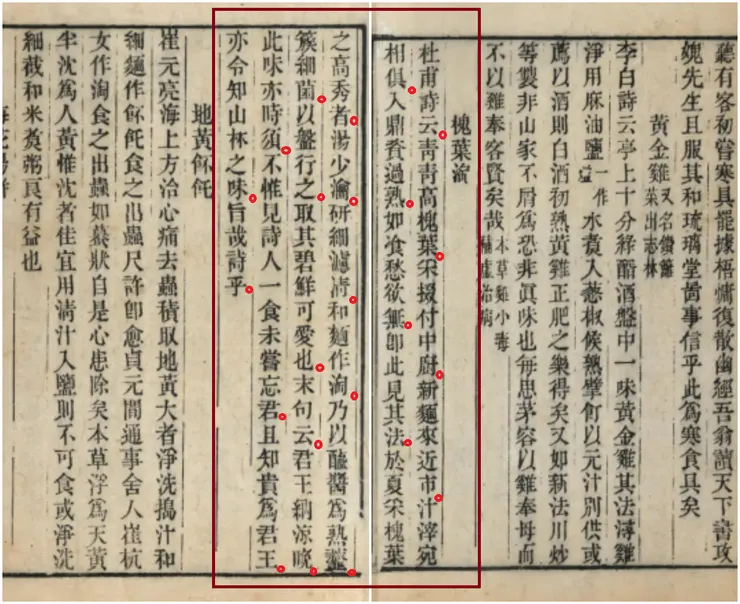 聽有客初嘗寒具罷據梧慵復散幽經吾翁讀天下書攻
媿先生且服其和琉璃堂啚事信乎此爲寒食具矣
黄金雞又名鑚籬菜出志林
李白詩云亭上十分綠醑酒盤中一味黄金雞其法燖雞
淨用麻油鹽一作塩水煑入蔥椒候熟擘飣以元汁別供或
薦以酒則白酒初熟黄雞正肥之樂得矣又如新法川炒
等製非山家不屑爲恐非眞味也每思茅容以雞奉母而
不以雞奉客賢矣哉本草雞小毒補虛治病
槐葉淘
杜甫詩云靑靑高槐葉采掇付中厨新麵來近市汁滓宛
相俱入鼎資過熟加飡愁欲無卽此見其法於夏采槐葉
之高秀者湯少瀹硏細濾淸和麵作淘乃以醯醬爲熟虀
簇細茵以盤行之取其碧鮮可愛也末句云君王納涼晚
此味亦時須不惟見詩人一食未嘗忘君且知貴爲君王
亦令知山林之味旨哉詩乎
地黄餺飥
崔元亮海上方治心痛去蟲積取地黄大者淨洗搗汁和
細麵作餺飥食之出蟲尺許卽愈貞元間通事舍人崔杭
女作淘食之出蟲如蟇狀自是心患除矣本草浮爲天黄
半沈爲人黄惟沈者佳宜用淸汁入鹽則不可食或淨洗
細截和米煑粥良有益也